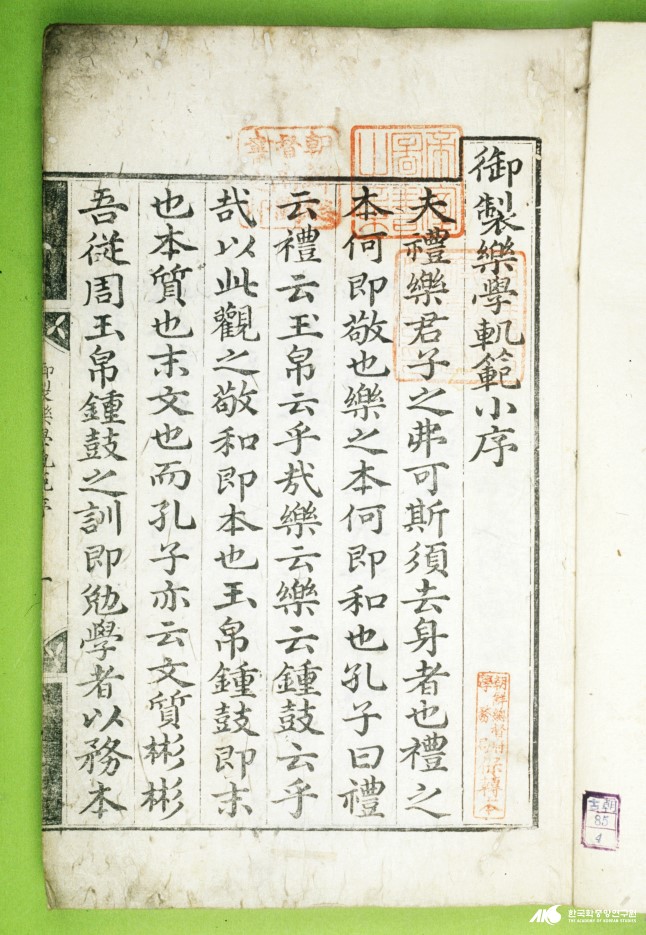 御製樂學軌範小序
夫禮樂君子之弗可斯須去身者也禮之
本何即敬也樂之本何即和也孔子曰禮
云禮云玉帛云乎㢤樂云樂云鍾鼓云乎
㢤以此觀之敬和即本也玉帛鍾鼓即末
也本質也末文也而孔子亦云文質彬彬
吾從周玉帛鍾鼓之訓即勉學者以務本
御製樂學軌範序
一
古朝
85
4
AKS 한국학중앙연구원
THE ACADEMY OF KOREAN STUDIES